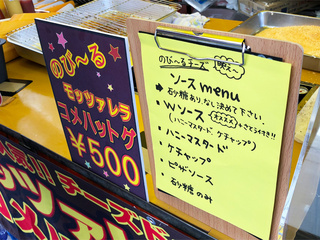 のび〜る
モッツァレラ
コメハットグ
¥500
のび〜るチーズ
ソース menu
★砂糖ありなし決めて下さい
・Wソース
(ハニーマスタード ケチャップ)
・ハニーマスタード
・ケチャップ
・ピザソース
・砂糖のみ
チーズ